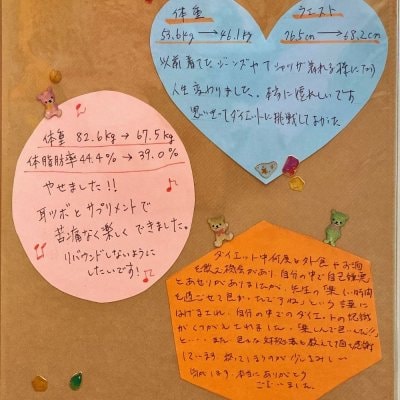 体重 ウエスト
53.6kg→46.1kg 76.5cm→68.2cm
以前着てたジーンズやTシャツが着れる様になり
人生変わりました。本当に嬉しいです
思いきってダイエットに挑戦してよかった
体重 82.6kg→67.5kg
体脂肪率44.4%→39.0%
やせました!!
耳ツボとサプリメントで
苦痛なく楽しくできました。
リバウンドしないように
したいです!
ダイエット中何度も外食やお酒
を飲む機会があり、自分の中で自己嫌悪
とあせりがありましたが、先生の「楽しい時間
を過ごせて良かったですね」という言葉に
はげまされ、自分の中でのダイエットの意識
がくつがえされました。
本当にありがとう
ございました。